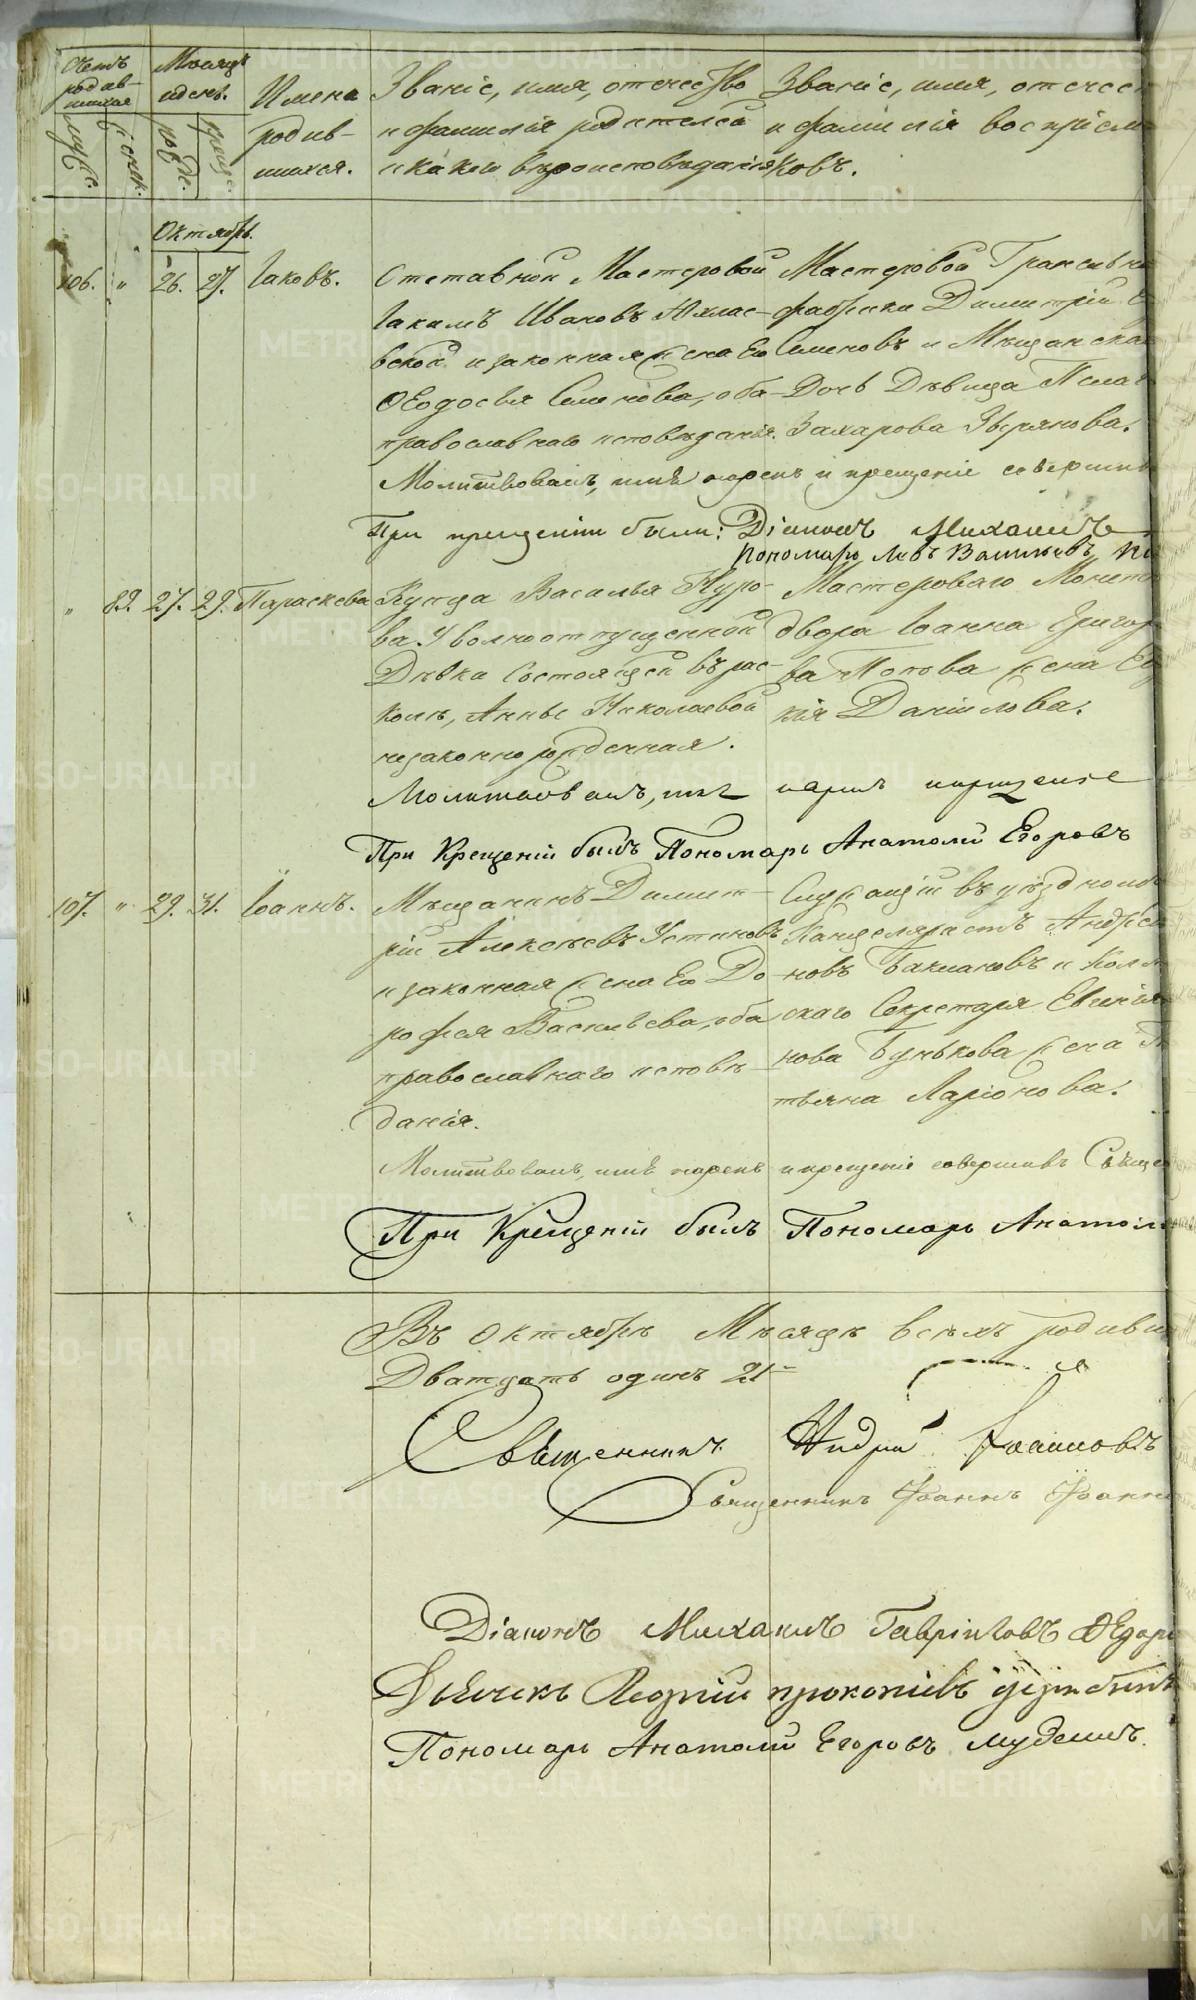 Счетъ родив-шихся
Мѣсяцъ и день.
Имена родив-шихся.
Званіе, имя, отечество и фамилія родителей и какого вѣроисповѣданія
Званіе, имя, отечес
и фамилія воспріем
ковъ.
муж.
женск.
рожде.
креще.
Октябрь.
106. " 26. 27. Іаковъ.
Отставной Мастеровой
Іакимъ Ивановъ
и законная жена Его
Ѳеодосья Семенова, оба
православнаго исповѣданія.
Мастеровой Гранильн
фабрики Димитрій
Семеновъ и Мѣщанская
Дочь Дѣвица Пелаг
Захарова Зырянова.
Молитвовалъ, имя нарекъ и крещеніе совершилъ
При крещеніи были: Діаконъ Михаилъ
Пономарь Левъ Васильевъ
" 82. 27. 29. Параскева
Купца Василья
ва Уволноотпущенной
Дѣвки Состоящей въ рас-
колѣ, Анны Николаевой
незаконнорожденная.
Мастероваго Монетн
двора Іоанна Григор
ва Попова жена Ев
кія Даніилова.
Молитвовалъ, имя нарекъ и крещеніе
При Крещеніи былъ Пономарь Анатолій Егоровъ
107. " 29. 31. Іоаннъ.
Мѣщанинъ Димит-
рій Алексѣевъ Устиновъ
и законная жена Его До
рофея Васильева, оба
православнаго исповѣ-
данія.
Служащій въ уѣздномъ
Канцеляристъ Андрей
новъ Бакмановъ и Колл
скаго Секретаря Евгенія
нова Бунькова жена Т
тьяна Ларіонова.
Молитвовалъ, имя нарекъ и крещеніе совершилъ Свяще
При Крещеніи былъ Пономарь Анатол
Въ Октябрѣ Мѣсяцѣ всѣхъ родивш
Дватцать одинъ 21
Священникъ Андрей Іоанновъ
Священникъ Іоаннъ Іоанн
Діаконъ Михаилъ Гавріиловъ Ѳедор
Дьячекъ Андрей Прокопіевъ
Пономарь Анатолій Егоровъ
METRIKI.GASO-URAL.RU